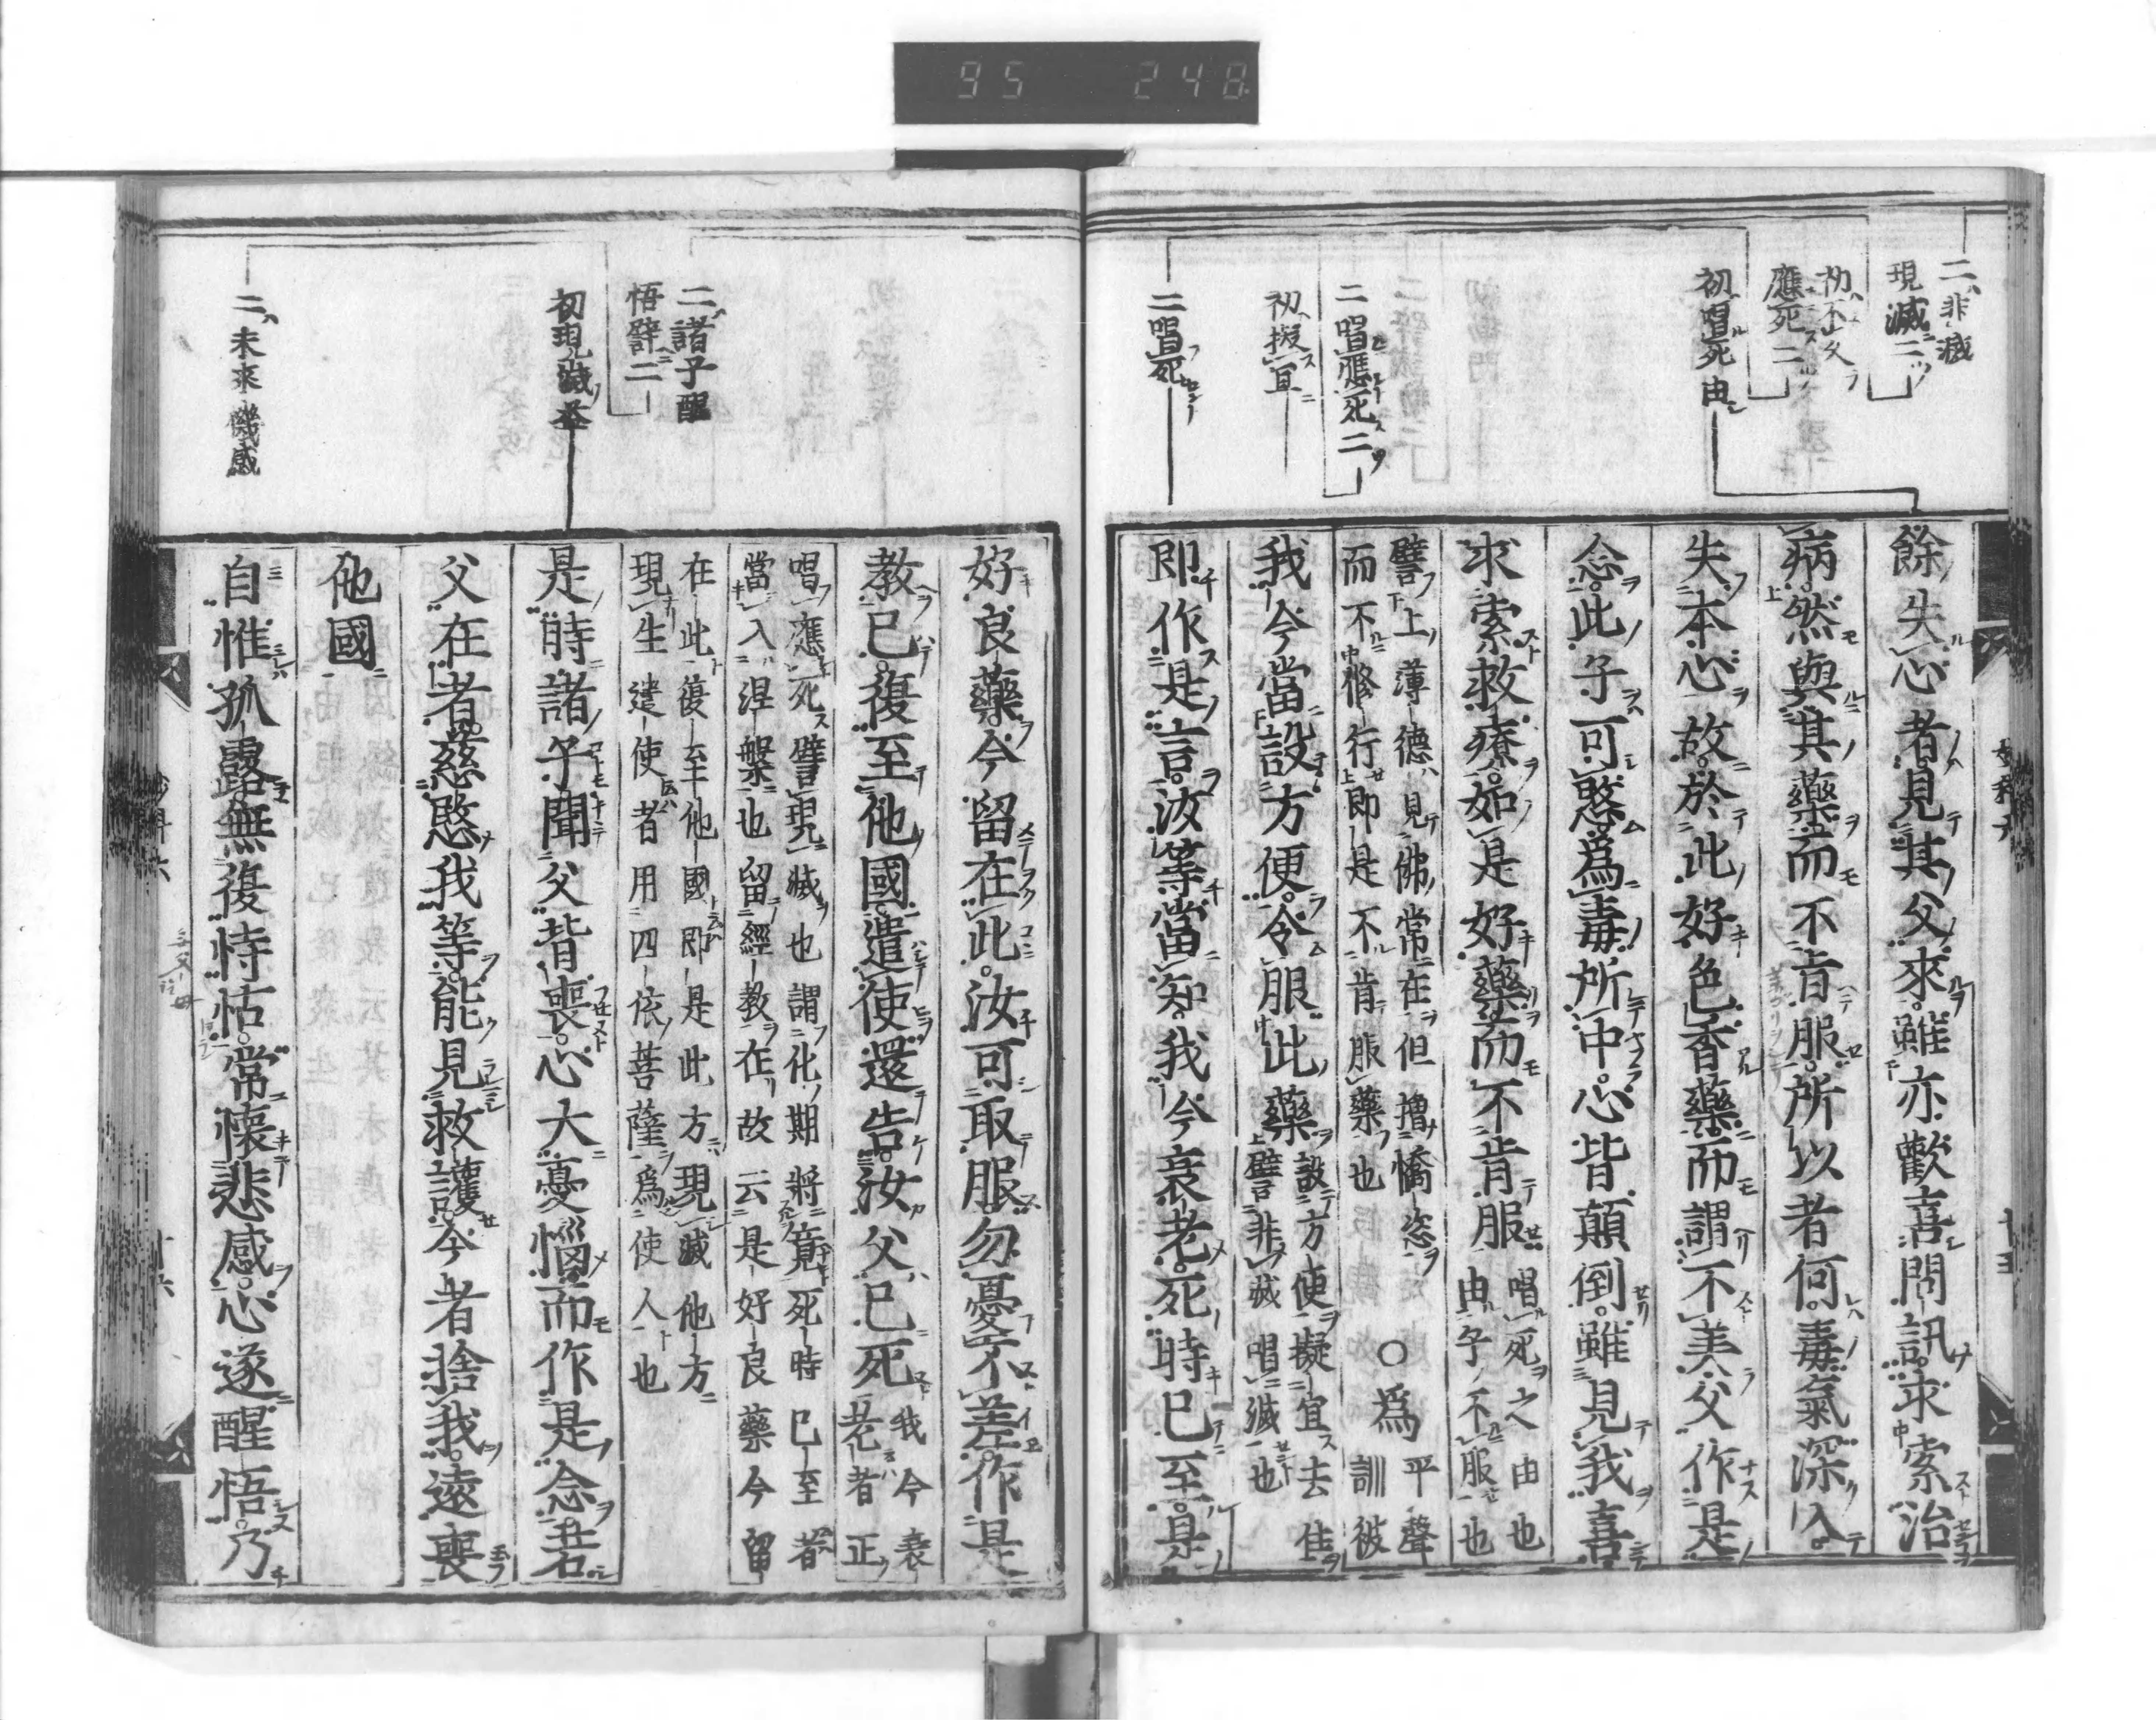 95 248
二非滅
現滅二
初不久
應死二
初唱死由
二唱應死二
初擬宜
二唱死
餘失心者見其父來雖亦歡喜問訊求索治
病然與其藥而不肯服所以者何毒氣深入
失本心故於此好色香藥而謂不美父作是
念此子可愍爲毒所中心皆顛倒雖見我喜
求索救療如是好藥而不肯服
唱死之由也
由子不服也
譬上薄德見佛常在但㩀憍恣
而不修行即是不肯服藥也
○爲
平聲
訓彼
我今當設方便令服此藥
設方便擬宜去住
譬非滅唱滅也
即作是言汝等當知我今衰老死時已至是
二諸子醒
悟譬二
初現滅益
二未來機感
好良藥今留在此汝可取服勿憂不差作是
教已復至他國遣使還告汝父已死
我今衰
老者正
唱應死譬現滅也謂化期將竟死時已至者
當入涅槃也留經教在故云是好良藥今留
在此復至他國即是此方現滅他方
現生遣使者用四依菩薩爲使人也
是時諸子聞父背喪心大憂惱而作是念若
父在者慈愍我等能見救護今者捨我遠喪
他國
自惟孤露無復恃怙常懷悲感心遂醒悟乃